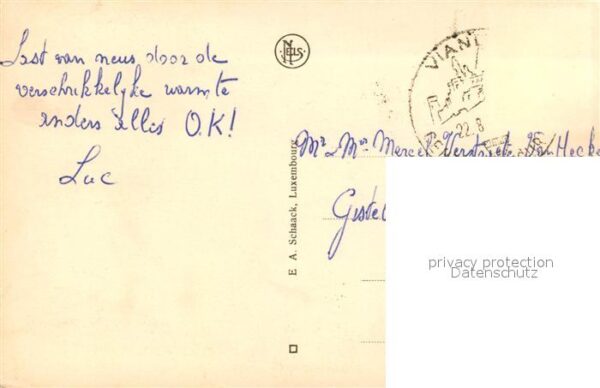 Last van neus door de
verschrikkelijke warmte
anders alles O.K!
Luc
NELS
VIAND
22.8
E. A. Schaack, Luxembourg
Mr & Mme Marcel Van Hecke
Gistel
privacy protection
Datenschutz